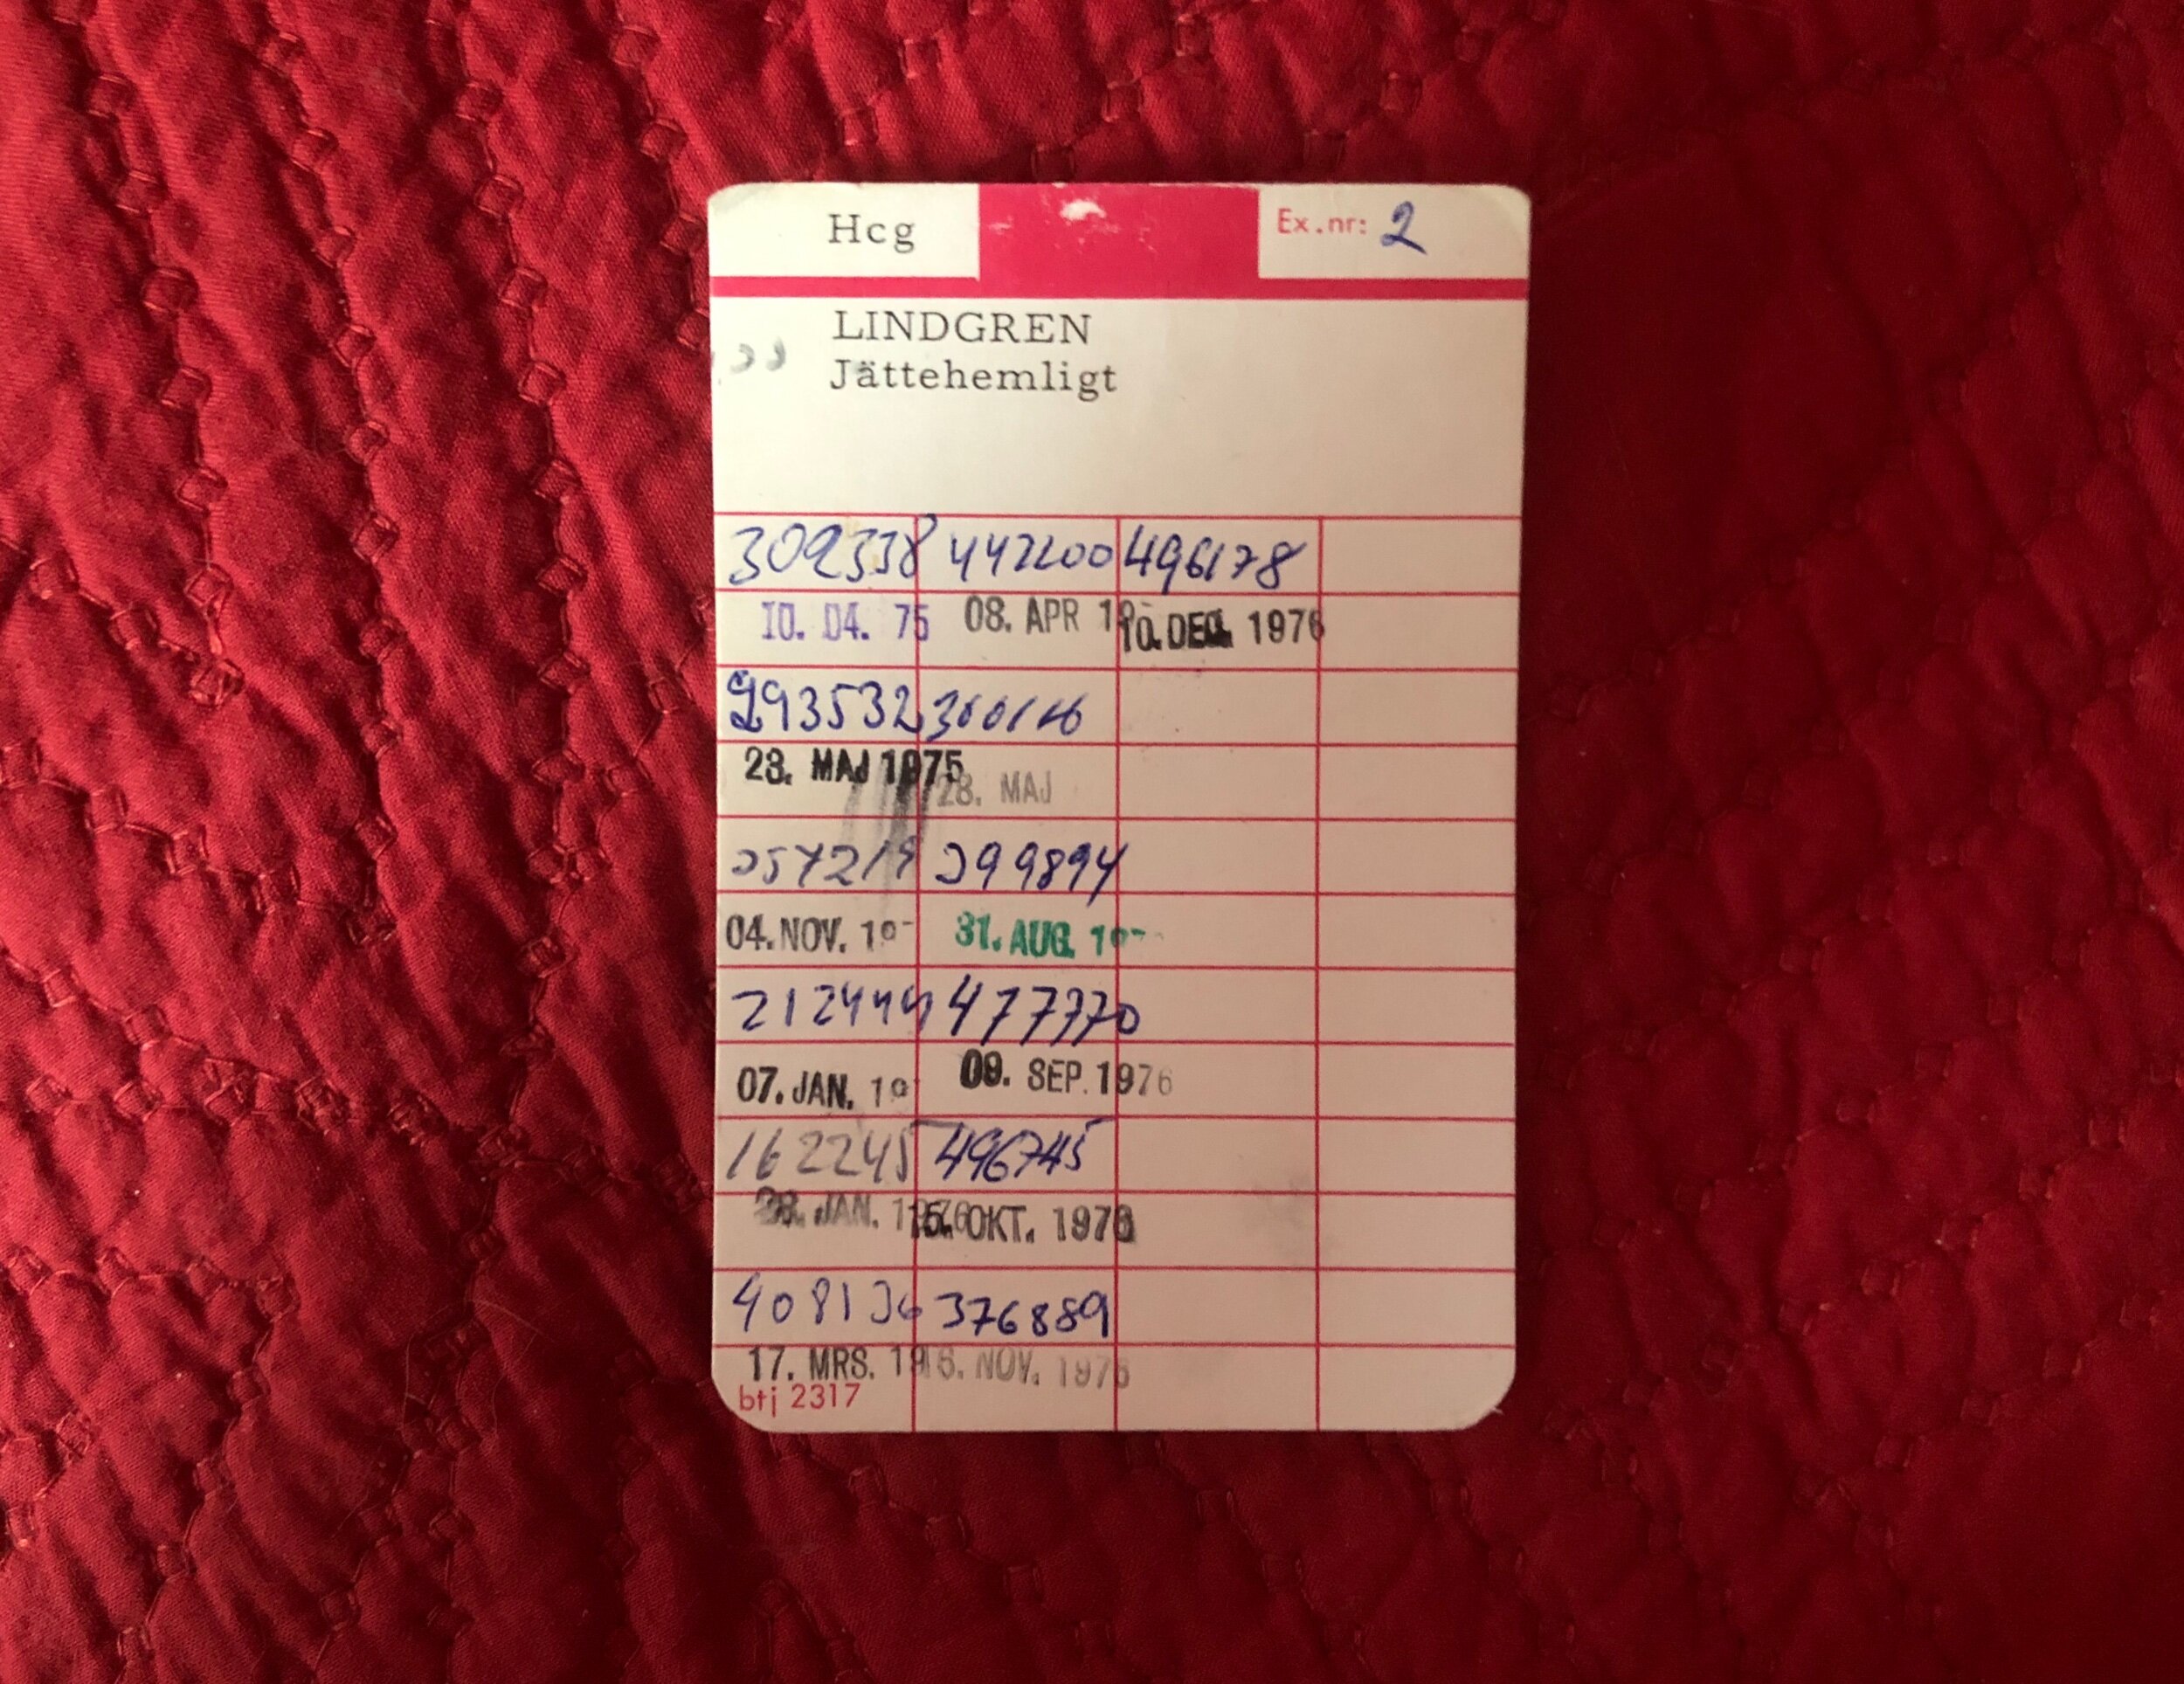 Hcg Ex.nr: 2
LINDGREN
Jättehemligt
309338 442200 496178
10. 04. 75 08. APR 10. DEC. 1976
293532
23. MAJ 1975 28. MAJ
399894
04. NOV. 31. AUG.
212444 477770
07. JAN. 09. SEP. 1976
162245 496745
JAN. 1976 15. OKT. 1976
408136 376889
17. MRS. NOV. 1976
btj 2317